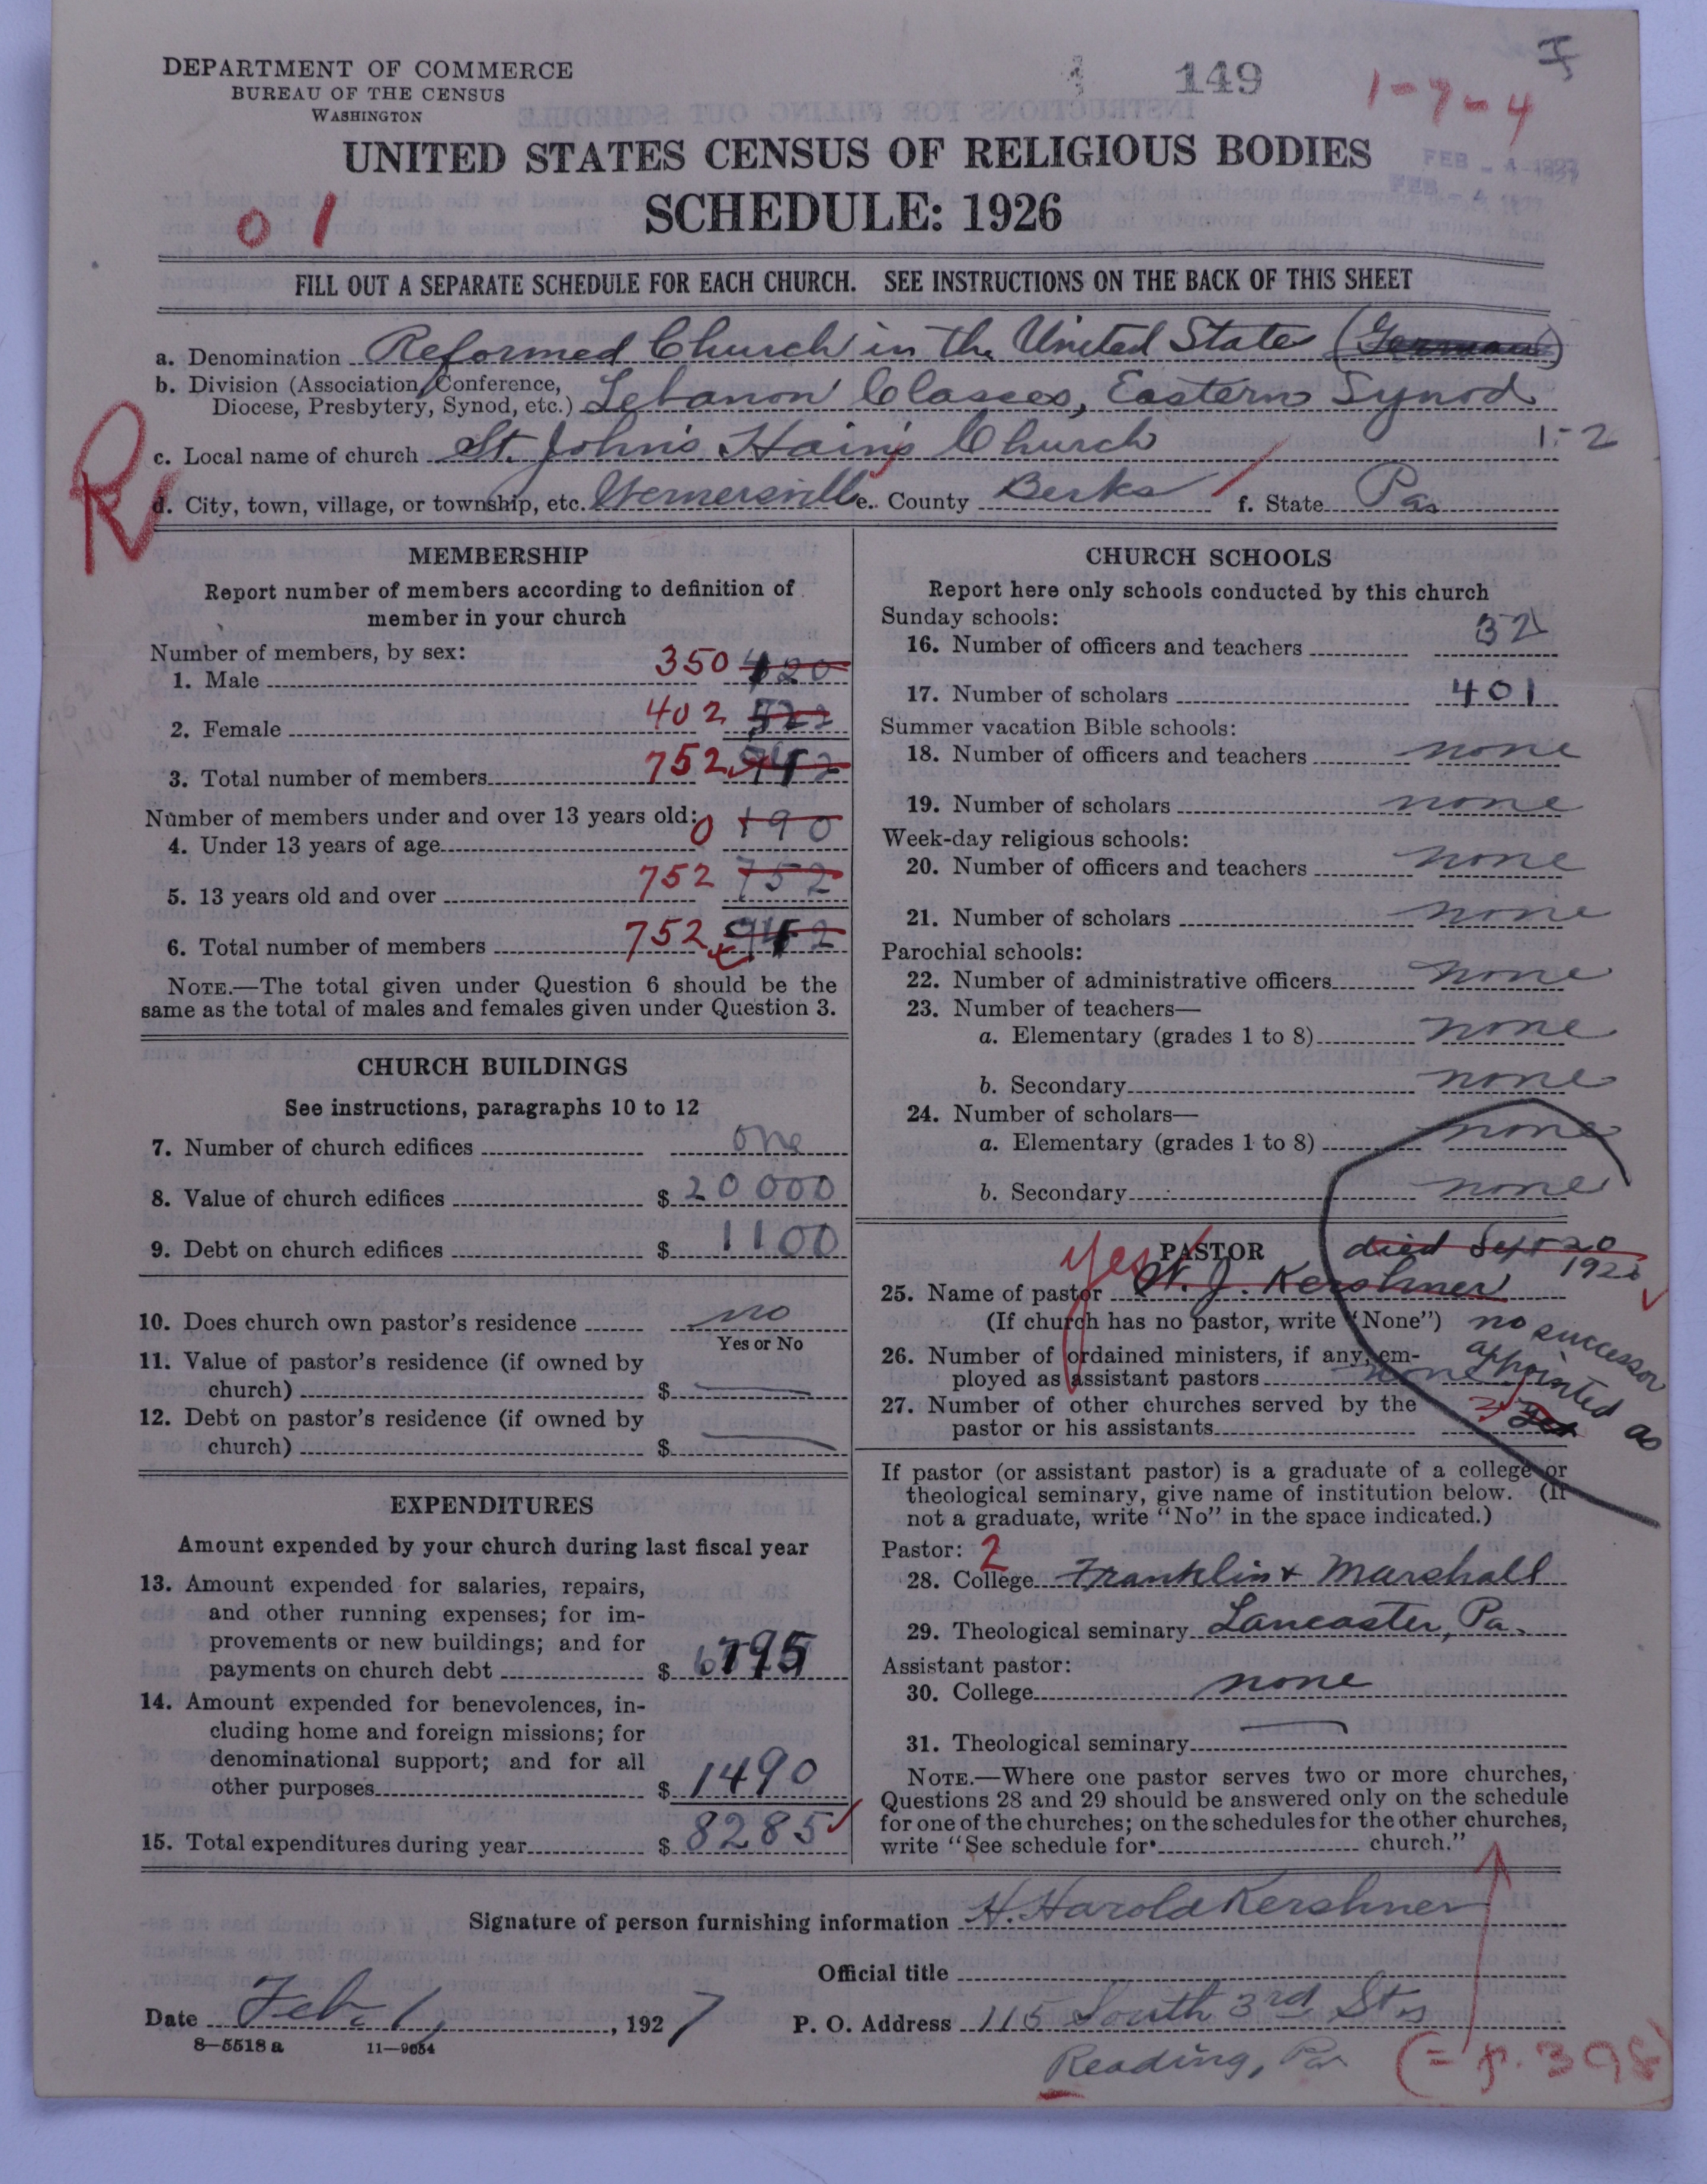 DEPARTMENT OF COMMERCE
BUREAU OF THE CENSUS
WASHINGTON
149
1-7-4
UNITED STATES CENSUS OF RELIGIOUS BODIES
FEB - 4 1927
SCHEDULE: 1926
FEB - 4
01
FILL OUT A SEPARATE SCHEDULE FOR EACH CHURCH. SEE INSTRUCTIONS ON THE BACK OF THIS SHEET
a. Denomination Reformed Church in the United State (German)
b. Division (Association, Conference,
Diocese, Presbytery, Synod, etc.) Lebanon Classes, Eastern Synod
c. Local name of church St. John's Hain's Church 1-2
R
d. City, town, village, or township, etc. Wernersville e. County Berks f. State Pa
MEMBERSHIP
Report number of members according to definition of
member in your church
Number of members, by sex:
1. Male 350 420
2. Female 402 522
3. Total number of members 752 942
Number of members under and over 13 years old:
4. Under 13 years of age 0 190
5. 13 years old and over 752 752
6. Total number of members 752 942
NOTE.—The total given under Question 6 should be the
same as the total of males and females given under Question 3.
CHURCH BUILDINGS
See instructions, paragraphs 10 to 12
7. Number of church edifices one
8. Value of church edifices $ 20000
9. Debt on church edifices $ 1100
10. Does church own pastor's residence no
Yes or No
11. Value of pastor's residence (if owned by
church) $ —
12. Debt on pastor's residence (if owned by
church) $ —
EXPENDITURES
Amount expended by your church during last fiscal year
13. Amount expended for salaries, repairs,
and other running expenses; for im-
provements or new buildings; and for
payments on church debt $ 6795
14. Amount expended for benevolences, in-
cluding home and foreign missions; for
denominational support; and for all
other purposes $ 1490
15. Total expenditures during year $ 8285
CHURCH SCHOOLS
Report here only schools conducted by this church
Sunday schools:
16. Number of officers and teachers 32
17. Number of scholars 401
Summer vacation Bible schools:
18. Number of officers and teachers none
19. Number of scholars none
Week-day religious schools:
20. Number of officers and teachers none
21. Number of scholars none
Parochial schools:
22. Number of administrative officers none
23. Number of teachers—
a. Elementary (grades 1 to 8) none
b. Secondary none
24. Number of scholars—
a. Elementary (grades 1 to 8) none
b. Secondary none
yes PASTOR died Sept 20
1926
25. Name of pastor W. J. Kershner
(If church has no pastor, write "None") no successor
appointed as
yet
26. Number of ordained ministers, if any, em-
ployed as assistant pastors none
27. Number of other churches served by the
pastor or his assistants
If pastor (or assistant pastor) is a graduate of a college or
theological seminary, give name of institution below. (If
not a graduate, write "No" in the space indicated.)
Pastor: 2
28. College Franklin & Marshall
29. Theological seminary Lancaster, Pa.
Assistant pastor:
30. College none
31. Theological seminary —
NOTE.—Where one pastor serves two or more churches,
Questions 28 and 29 should be answered only on the schedule
for one of the churches; on the schedules for the other churches,
write "See schedule for church."
Signature of person furnishing information H. Harold Kershner
Official title
Date Feb. 1, 1927
P. O. Address 115 South 3rd St
Reading, Pa
8—5518 a 11—9054
(= p. 398)